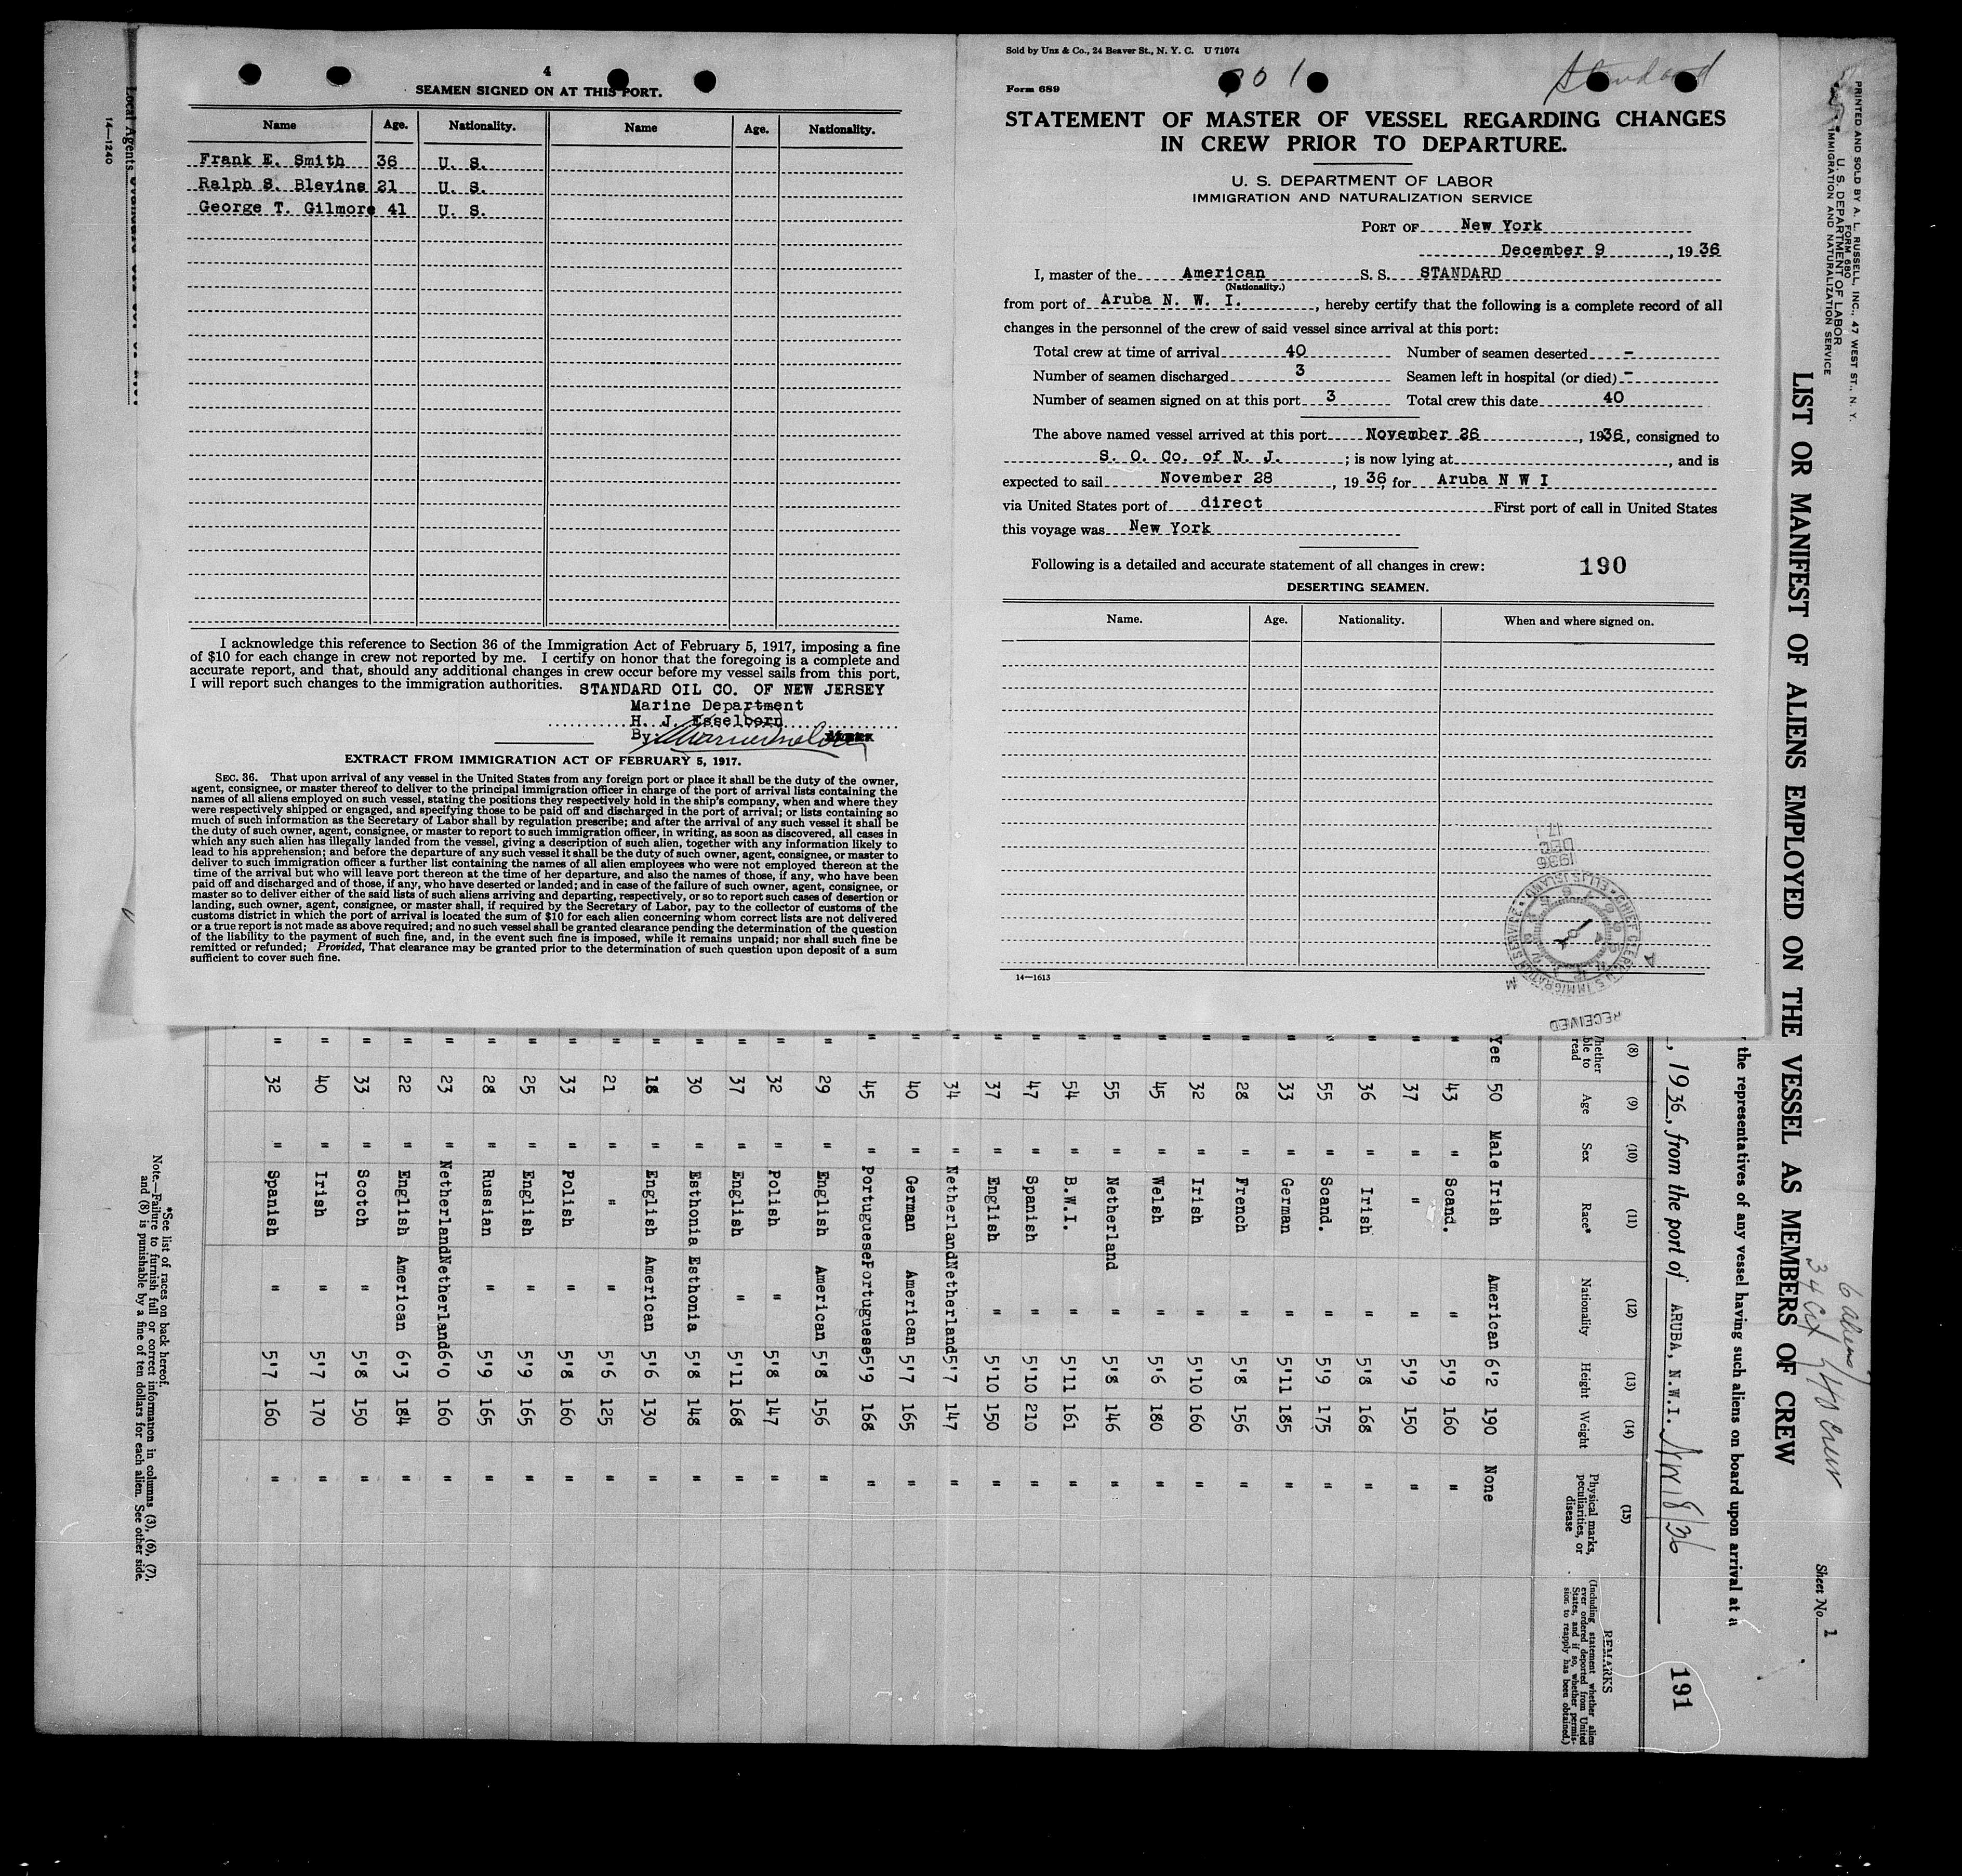 4
SEAMEN SIGNED ON AT THIS PORT.
Name Age. Nationality. Name Age. Nationality.
Frank E. Smith 36 U. S.
Ralph S. Blevins 21 U. S.
George T. Gilmore 41 U. S.
I acknowledge this reference to Section 36 of the Immigration Act of February 5, 1917, imposing a fine
of $10 for each change in crew not reported by me. I certify on honor that the foregoing is a complete and
accurate report, and that, should any additional changes in crew occur before my vessel sails from this port,
I will report such changes to the immigration authorities. STANDARD OIL CO. OF NEW JERSEY
Marine Department
H. J. Esselborn
By:
EXTRACT FROM IMMIGRATION ACT OF FEBRUARY 5, 1917.
SEC. 36. That upon arrival of any vessel in the United States from any foreign port or place it shall be the duty of the owner,
agent, consignee, or master thereof to deliver to the principal immigration officer in charge of the port of arrival lists containing the
names of all aliens employed on such vessel, stating the positions they respectively hold in the ship's company, when and where they
were respectively shipped or engaged, and specifying those to be paid off and discharged in the port of arrival; or lists containing so
much of such information as the Secretary of Labor shall by regulation prescribe; and after the arrival of any such vessel it shall be
the duty of such owner, agent, consignee, or master to report to such immigration officer, in writing, as soon as discovered, all cases in
which any such alien has illegally landed from the vessel, giving a description of such alien, together with any information likely to
lead to his apprehension; and before the departure of any such vessel it shall be the duty of such owner, agent, consignee, or master to
deliver to such immigration officer a further list containing the names of all alien employees who were not employed thereon at the
time of the arrival but who will leave port thereon at the time of her departure, and also the names of those, if any, who have been
paid off and discharged and of those, if any, who have deserted or landed; and in case of the failure of such owner, agent, consignee, or
master so to deliver either of the said lists of such aliens arriving and departing, respectively, or so to report such cases of desertion or
landing, such owner, agent, consignee, or master shall, if required by the Secretary of Labor, pay to the collector of customs of the
customs district in which the port of arrival is located the sum of $10 for each alien concerning whom correct lists are not delivered
or a true report is not made as above required; and no such vessel shall be granted clearance pending the determination of the question
of the liability to the payment of such fine, and, in the event such fine is imposed, while it remains unpaid; nor shall such fine be
remitted or refunded; Provided, That clearance may be granted prior to the determination of such question upon deposit of a sum
sufficient to cover such fine.
Sold by Unz & Co., 24 Beaver St., N. Y. C. U 71074
Standard
Form 689
STATEMENT OF MASTER OF VESSEL REGARDING CHANGES
IN CREW PRIOR TO DEPARTURE.
U. S. DEPARTMENT OF LABOR
IMMIGRATION AND NATURALIZATION SERVICE
PORT OF New York
December 9, 1936
I, master of the American S. S. STANDARD
(Nationality.)
from port of Aruba N. W. I., hereby certify that the following is a complete record of all
changes in the personnel of the crew of said vessel since arrival at this port:
Total crew at time of arrival 40 Number of seamen deserted -
Number of seamen discharged 3 Seamen left in hospital (or died) -
Number of seamen signed on at this port 3 Total crew this date 40
The above named vessel arrived at this port November 26, 1936, consigned to
S. O. Co. of N. J.; is now lying at , and is
expected to sail November 28, 1936, for Aruba N W I
via United States port of direct First port of call in United States
this voyage was New York
Following is a detailed and accurate statement of all changes in crew: 190
DESERTING SEAMEN.
Name. Age. Nationality. When and where signed on.
14—1613
RECEIVED
DEC 17 1936
CHIEF CLERK U.S. IMMIGRATION SERVICE ELLIS ISLAND
Local Agents
14—1240
PRINTED AND SOLD BY A. L. RUSSELL, INC., 47 WEST ST., N. Y.
FORM 680
U. S. DEPARTMENT OF LABOR
IMMIGRATION AND NATURALIZATION SERVICE
6 aliens
34 cit
40 crew
Sheet No. 1
LIST OR MANIFEST OF ALIENS EMPLOYED ON THE VESSEL AS MEMBERS OF CREW
the representatives of any vessel having such aliens on board upon arrival at a
, 1936, from the port of ARUBA, N.W.I. Nov 18/36
191
(8) (9) (10) (11) (12) (13) (14) (15)
Whether able to read Age Sex Race* Nationality Height Weight Physical marks, peculiarities, or disease REMARKS
(Including statement whether alien ever ordered deported from United States, and if so, whether permission to reapply has been obtained.)
Yes 50 Male Irish American 6'2 190 None
" 43 " Scand. " 5'9 160 "
" 37 " " " 5'9 150 "
" 36 " Irish " 5'8 168 "
" 55 " Scand. " 5'9 175 "
" 33 " German " 5'11 185 "
" 28 " French " 5'8 156 "
" 32 " Irish " 5'10 160 "
" 45 " Welsh " 5'6 180 "
" 55 " Netherland " 5'8 146 "
" 54 " B.W.I. " 5'11 161 "
" 47 " Spanish " 5'10 210 "
" 37 " English " 5'10 150 "
" 34 " Netherland Netherland 5'7 147 "
" 40 " German American 5'7 165 "
" 45 " Portuguese Portuguese 5'9 168 "
" 29 " English American 5'8 156 "
" 32 " Polish " 5'8 147 "
" 37 " English " 5'11 168 "
" 30 " Esthonia Esthonia 5'8 148 "
" 18 " English American 5'6 130 "
" 21 " " " 5'6 125 "
" 33 " Polish " 5'8 160 "
" 25 " English " 5'9 165 "
" 28 " Russian " 5'9 165 "
" 23 " Netherland Netherland 6'0 160 "
" 22 " English American 6'3 184 "
" 33 " Scotch " 5'8 150 "
" 40 " Irish " 5'7 170 "
" 32 " Spanish " 5'7 160 "
*See list of races on back hereof.
Note.—Failure to furnish full or correct information in columns (3), (6), (7),
and (8) is punishable by a fine of ten dollars for each alien. See other side.